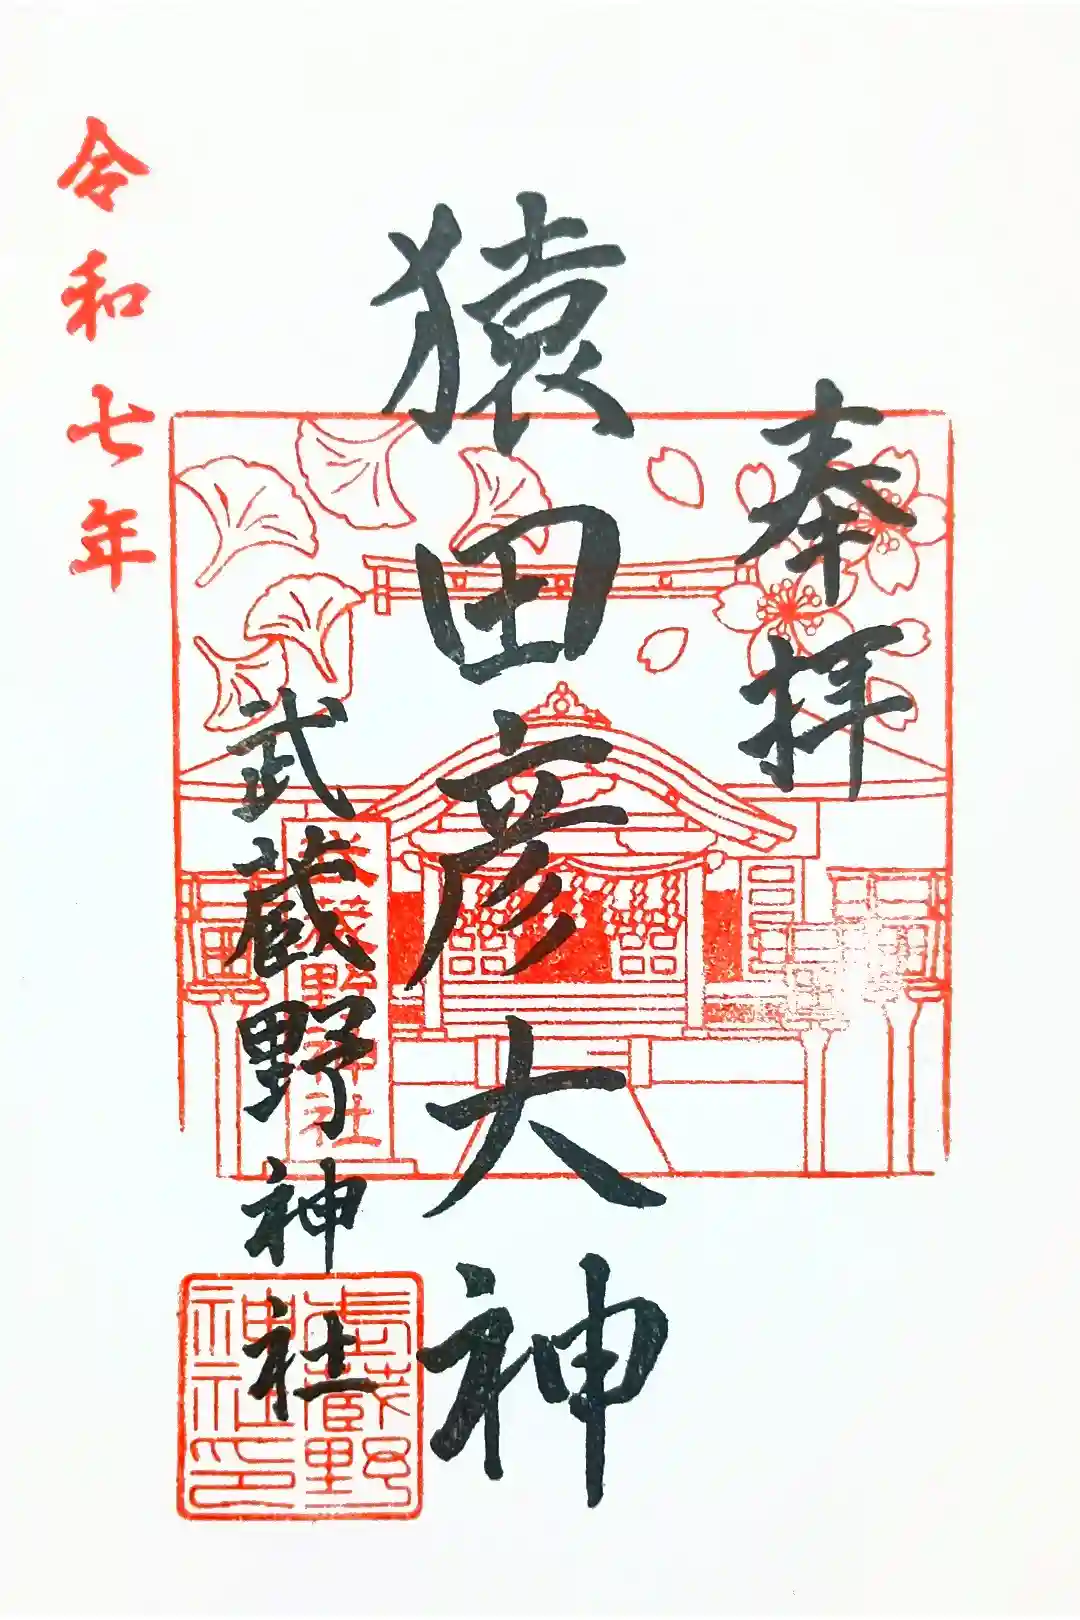 奉拝
猿田彦大神
武蔵野神社
武蔵野神社
武蔵野神社印
令和七年